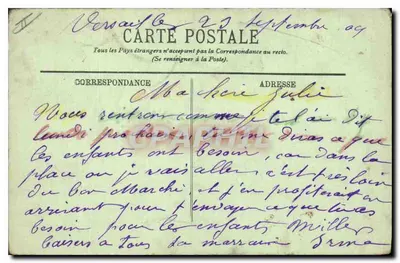 II
Versailles 23 Septembre 09
CARTE POSTALE
Tous les Pays étrangers n'acceptent pas la Correspondance au recto.
(Se renseigner à la Poste).
CORRESPONDANCE
ADRESSE
Ma chère Julie
Nous rentrons comme je te l'ai dit
lundi prochain tu me diras ce que
les enfants ont besoin, car dans la
place ou je vais aller, c'est pres loin
du bon Marché, et j'en profiterai en
arrivant pour t'envoyer ce que tu as
besoin pour les enfants mille
baisers a tous ta marraine Irma